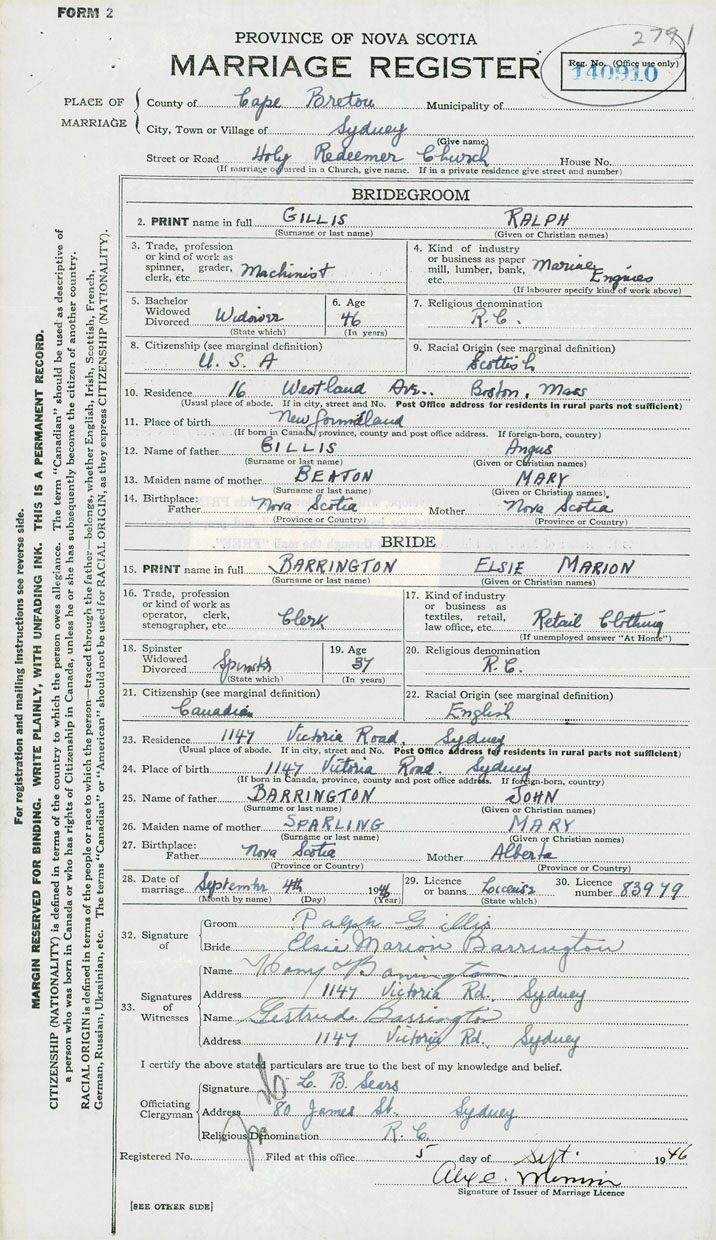 FORM 2
2791
PROVINCE OF NOVA SCOTIA
MARRIAGE REGISTER
Reg. No. (Office use only)
140910
PLACE OF MARRIAGE
County of Cape Breton Municipality of
City, Town or Village of Sydney
(Give name)
Street or Road Holy Redeemer Church House No.
(If marriage occurred in a Church, give name. If in a private residence give street and number)
BRIDEGROOM
2. PRINT name in full GILLIS RALPH
(Surname or last name) (Given or Christian names)
3. Trade, profession or kind of work as spinner, grader, clerk, etc. Machinist
4. Kind of industry or business as paper mill, lumber, bank, etc. Marine Engines
(If labourer specify kind of work above)
5. Bachelor Widowed Divorced Widower
(State which)
6. Age 46
(In years)
7. Religious denomination
R.C.
8. Citizenship (see marginal definition)
U.S.A
9. Racial Origin (see marginal definition)
Scottish
10. Residence 16 Westland Ave.. Boston, Mass
(Usual place of abode. If in city, street and No. Post Office address for residents in rural parts not sufficient)
11. Place of birth Newfoundland
(If born in Canada, province, county and post office address. If foreign-born, country)
12. Name of father GILLIS Angus
(Surname or last name) (Given or Christian names)
13. Maiden name of mother BEATON MARY
(Surname or last name) (Given or Christian names)
14. Birthplace: Father Nova Scotia Mother Nova Scotia
(Province or Country) (Province or Country)
BRIDE
15. PRINT name in full BARRINGTON ELSIE MARION
(Surname or last name) (Given or Christian names)
16. Trade, profession or kind of work as operator, clerk, stenographer, etc. Clerk
17. Kind of industry or business as textiles, retail, law office, etc. Retail Clothing
(If unemployed answer "At Home")
18. Spinster Widowed Divorced Spinster
(State which)
19. Age 37
(In years)
20. Religious denomination
R.C.
21. Citizenship (see marginal definition)
Canadian
22. Racial Origin (see marginal definition)
English
23. Residence 1147 Victoria Road, Sydney
(Usual place of abode. If in city, street and No. Post Office address for residents in rural parts not sufficient)
24. Place of birth 1147 Victoria Road. Sydney
(If born in Canada, province, county and post office address. If foreign-born, country)
25. Name of father BARRINGTON JOHN
(Surname or last name) (Given or Christian names)
26. Maiden name of mother SPARLING MARY
(Surname or last name) (Given or Christian names)
27. Birthplace: Father Nova Scotia Mother Alberta
(Province or Country) (Province or Country)
28. Date of marriage September 4th 1946
(Month by name) (Day) (Year)
29. Licence or banns Licence
(State which)
30. Licence number 83979
32. Signature of
Groom Ralph Gillis
Bride Elsie Marion Barrington
33. Signatures of Witnesses
Name Barrington
Address 1147 Victoria Rd., Sydney
Name Gertrude Barrington
Address 1147 Victoria Rd., Sydney
I certify the above stated particulars are true to the best of my knowledge and belief.
Officiating Clergyman
Signature L. B. Sears
Address 80 James St. Sydney
Religious Denomination R. C.
Registered No. Filed at this office 5 day of Sept. 1946
Signature of Issuer of Marriage Licence
[SEE OTHER SIDE]
For registration and mailing instructions see reverse side.
MARGIN RESERVED FOR BINDING. WRITE PLAINLY, WITH UNFADING INK. THIS IS A PERMANENT RECORD.
CITIZENSHIP (NATIONALITY) is defined in terms of the country to which the person owes allegiance. The term "Canadian" should be used as descriptive of
a person who was born in Canada or who has rights of Citizenship in Canada, unless he or she has subsequently become the citizen of another country.
RACIAL ORIGIN is defined in terms of the people or race to which the person—traced through the father—belongs, whether English, Irish, Scottish, French,
German, Russian, Ukrainian, etc. The terms "Canadian" or "American" should not be used for RACIAL ORIGIN, as they express CITIZENSHIP (NATIONALITY).